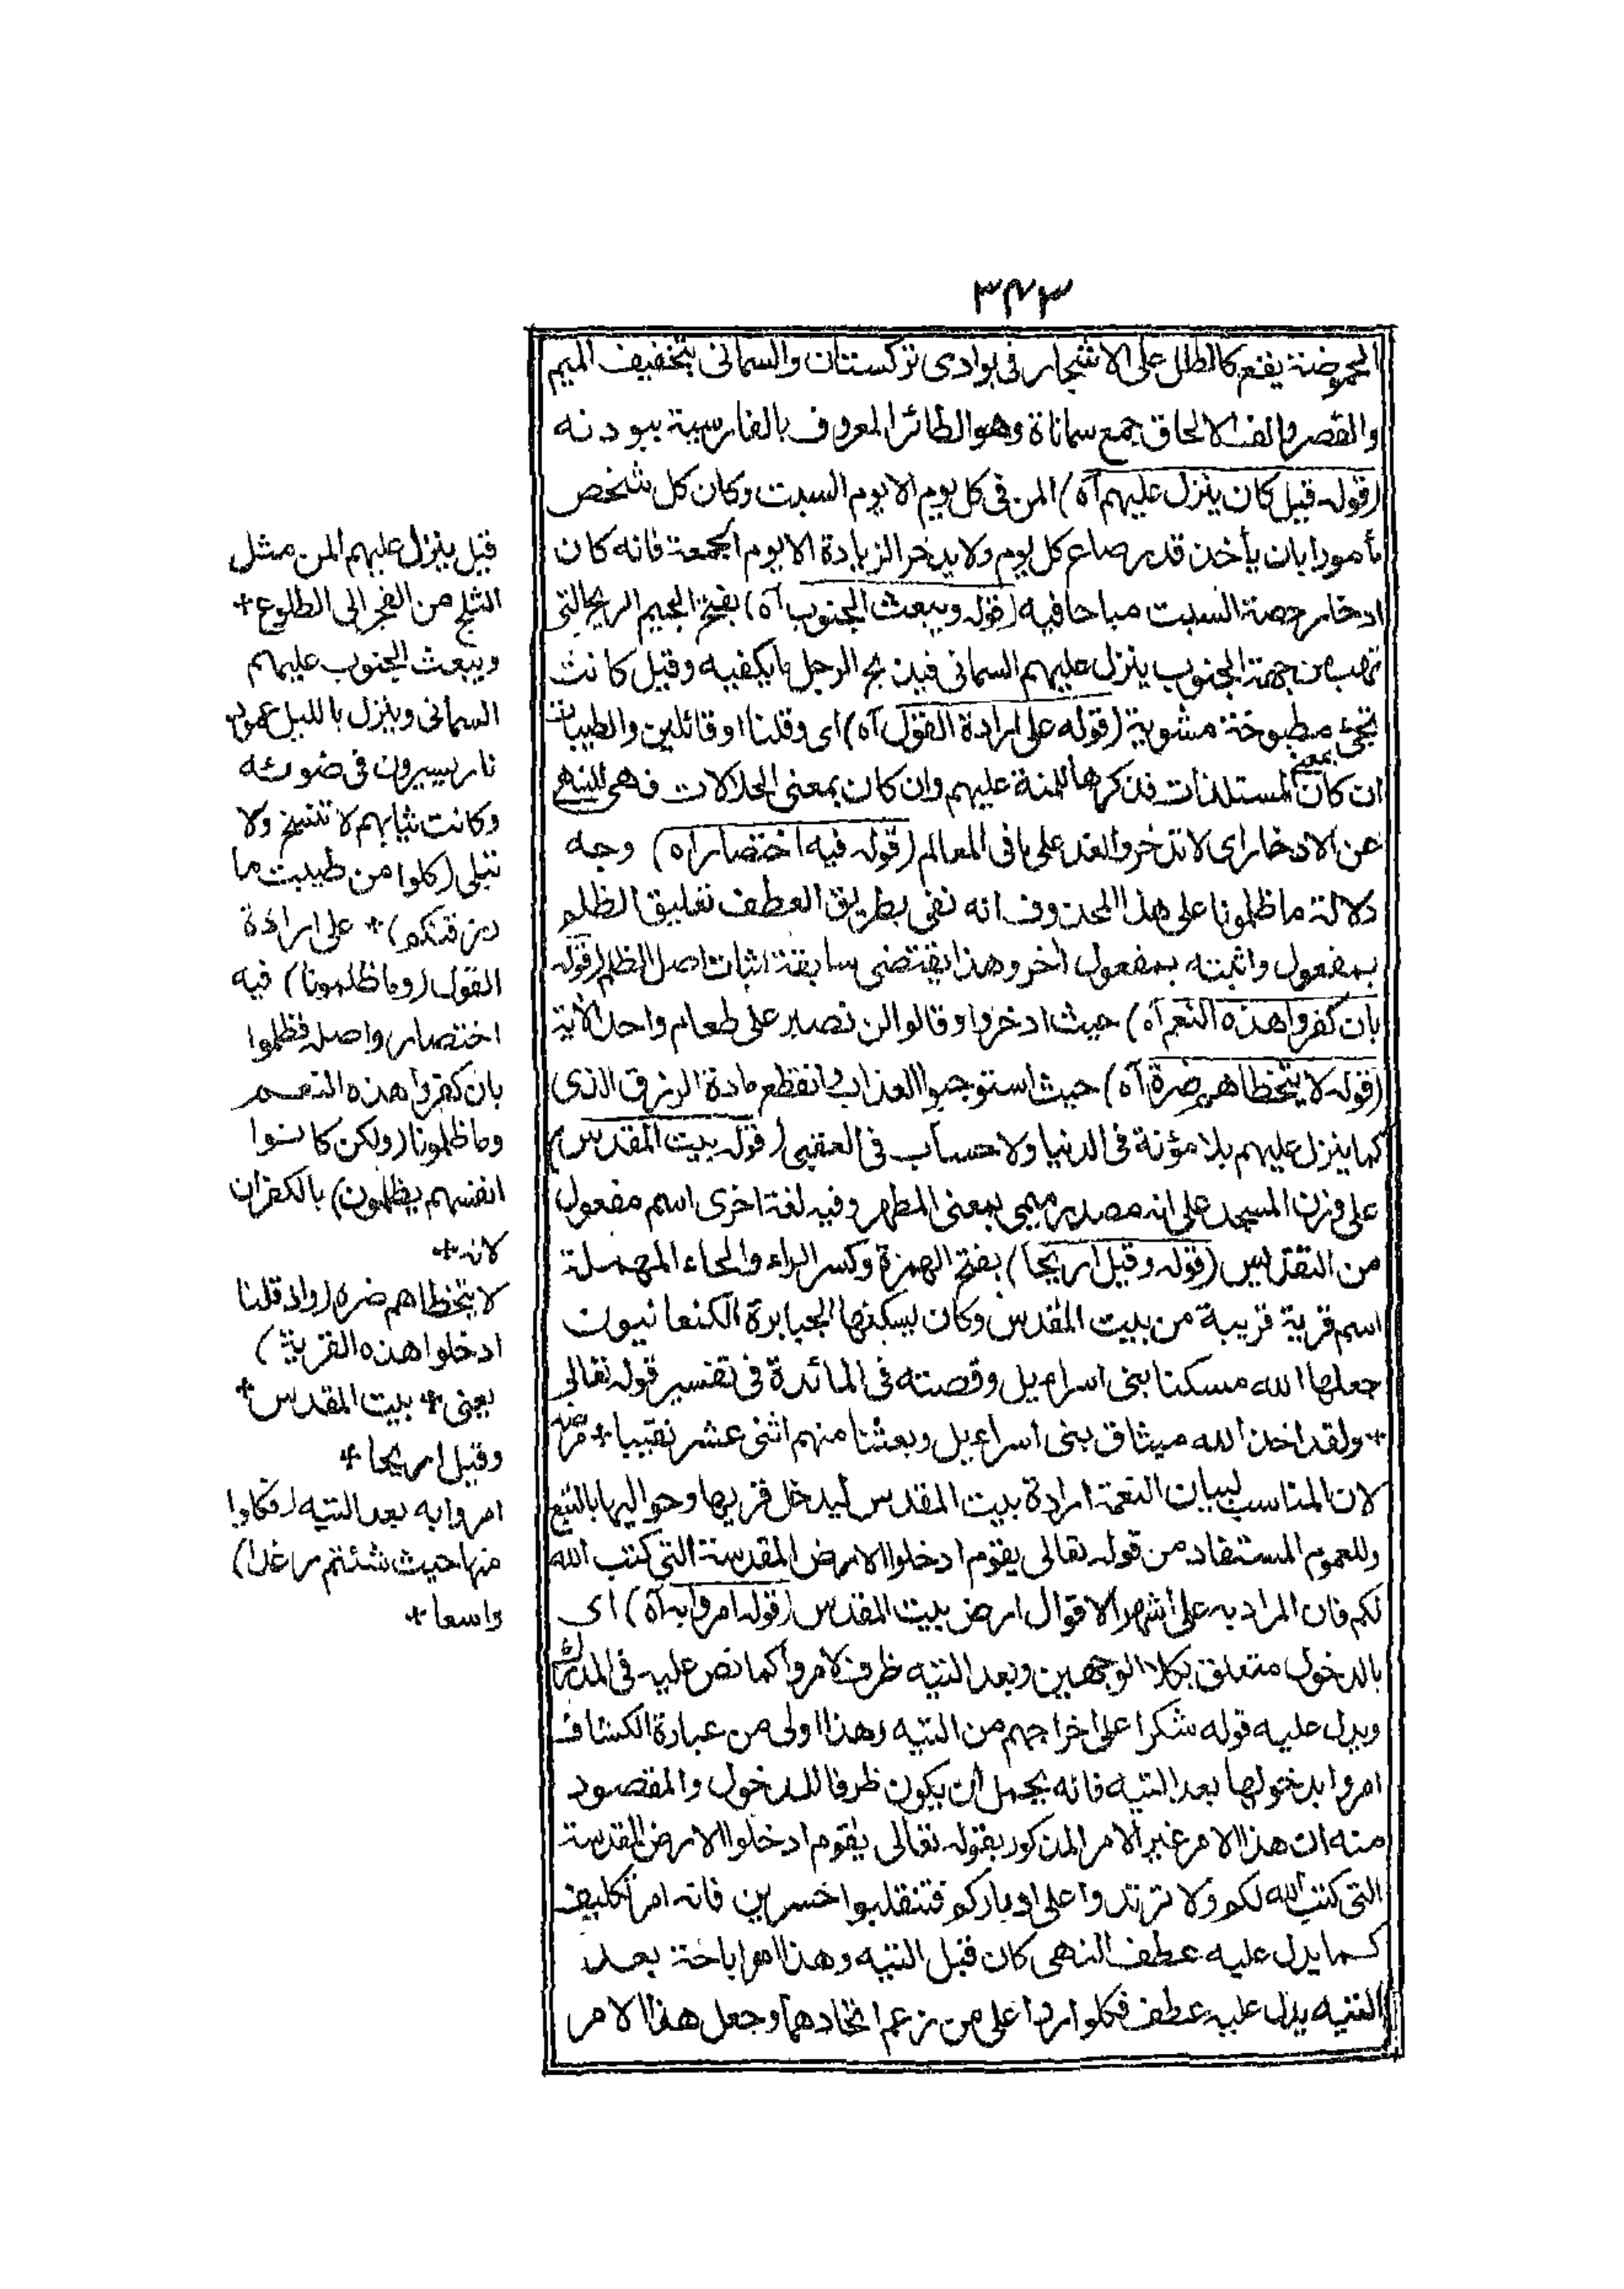 ٣٤٣
الحموضة يقع كالطل على الاشجار فى بوادى تركستان والسمانى بتخفيف الميم
والقصر والف الالحاق جمع سماناة وهو الطائر المعروف بالفارسية ببودنه
(قوله قيل كان ينزل عليهم آه) المن فى كل يوم الا يوم السبت وكان كل شخص
مأمورا بان يأخذ قدر صاع كل يوم ولا يدخر الزيادة الا يوم الجمعة فانه كان
ادخار حصة السبت مباحا فيه (قوله ويبعث الجنوب آه) بفتح الجيم الريح التى
تهب من جهة الجنوب ينزل عليهم السمانى فيذبح الرجل ما يكفيه وقيل كانت
تجئ مطبوخة مشوية (قوله على ارادة القول آه) اى وقلنا او قائلين والطيبات
ان كان بمعنى المستلذات فذكرها للمنة عليهم وان كان بمعنى الحلالات فهى للنهى
عن الادخار اى لا تدخروا لغد على ما فى المعالم (قوله فيه اختصار اه) وجه
دلالة ما ظلمونا على هذا المحذوف انه نفى بطريق العطف تعليق الظلم
بمفعول واثبته بمفعول اخر وهذا يقتضى سابقة اثبات اصل الظلم (قوله
بان كفروا هذه النعم آه) حيث ادخروا وقالوا لن نصبر على طعام واحد الآية
(قوله لا يتخطاهم ضره آه) حيث استوجبوا العذاب وانقطع مادة الرزق الذى
كما ينزل عليهم بلا مؤنة فى الدنيا ولا حساب فى العقبى (قوله بيت المقدس)
على وزن المسجد على انه مصدر ميمى بمعنى المطهر وفيه لغة اخرى اسم مفعول
من التقديس (قوله وقيل اريحا) بفتح الهمزة وكسر الراء والحاء المهملة
اسم قرية قريبة من بيت المقدس وكان يسكنها الجبابرة الكنعانيون
جعلها الله مسكنا بنى اسراءيل وقصته فى المائدة فى تفسير قوله تعالى
+ ولقد اخذ الله ميثاق بنى اسراءيل وبعثنا منهم اثنى عشر نقيبا +
لان المناسب لبيان النعمة ارادة بيت المقدس ليدخل قريها وحواليها بالتبع
وللعموم المستفاد من قوله تعالى يقوم ادخلوا الارض المقدسة التى كتب الله
لكم فان المراد به على أشهر الاقوال ارض بيت المقدس (قوله امروا به آه) اى
بالدخول متعلق بكلا الوجهين وبعد التيه ظرف لامروا كما نص عليه فى المدارك
ويدل عليه قوله شكرا على اخراجهم من التيه وهذا اولى من عبارة الكشاف
امروا بدخولها بعد التيه فانه يحتمل ان يكون ظرفا للدخول والمقصود
منه ان هذا الامر غير الامر المذكور بقوله تعالى يقوم ادخلوا الارض المقدسة
التى كتب الله لكم ولا ترتدوا على ادباركم فتنقلبوا خسرين فانه امر تكليف
كما يدل عليه عطف النهى كان قبل التيه وهذا امر اباحة بعد
التيه يدل عليه عطف فكلوا ردا على من زعم اتحادهما وجعل هذا الامر
قيل ينزل عليهم المن مثل
الثلج من الفجر الى الطلوع +
ويبعث الجنوب عليهم
السمانى وينزل بالليل عمود
نار يسيرون فى ضوئه
وكانت ثيابهم لا تتسخ ولا
تبلى (كلوا من طيبت ما
رزقنكم) + على ارادة
القول (وما ظلمونا) فيه
اختصار واصله فظلموا
بان كفروا هذه النعم
وما ظلمونا (ولكن كانوا
انفسهم يظلمون) بالكفران
لانه +
لا يتخطاهم ضره (واذ قلنا
ادخلوا هذه القرية)
يعنى + بيت المقدس +
وقيل اريحا +
امروا به بعد التيه (فكلوا
منها حيث شئتم رغدا)
واسعا +